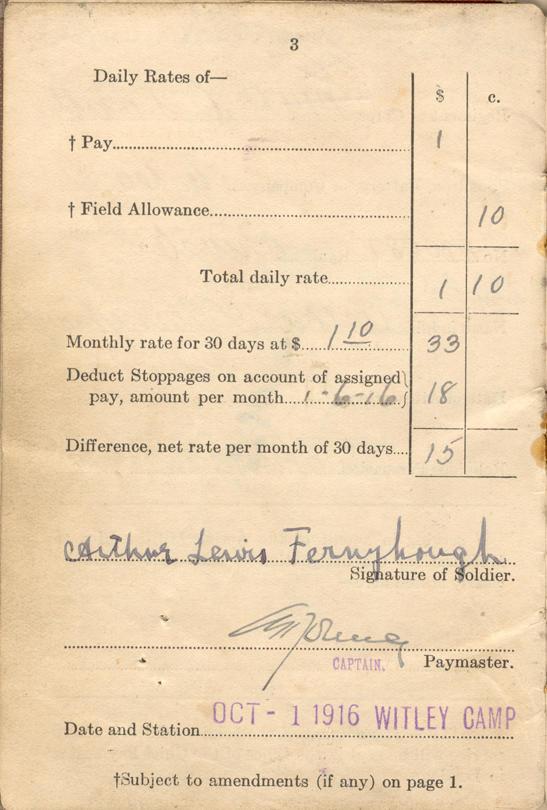 3
Daily Rates of—
$ c.
† Pay 1
† Field Allowance 10
Total daily rate 1 10
Monthly rate for 30 days at $ 1 10 33
Deduct Stoppages on account of assigned
pay, amount per month 1-6-16 18
Difference, net rate per month of 30 days 15
Arthur Lewis Fernyhough
Signature of Soldier.
CAPTAIN. Paymaster.
Date and Station OCT - 1 1916 WITLEY CAMP
†Subject to amendments (if any) on page 1.